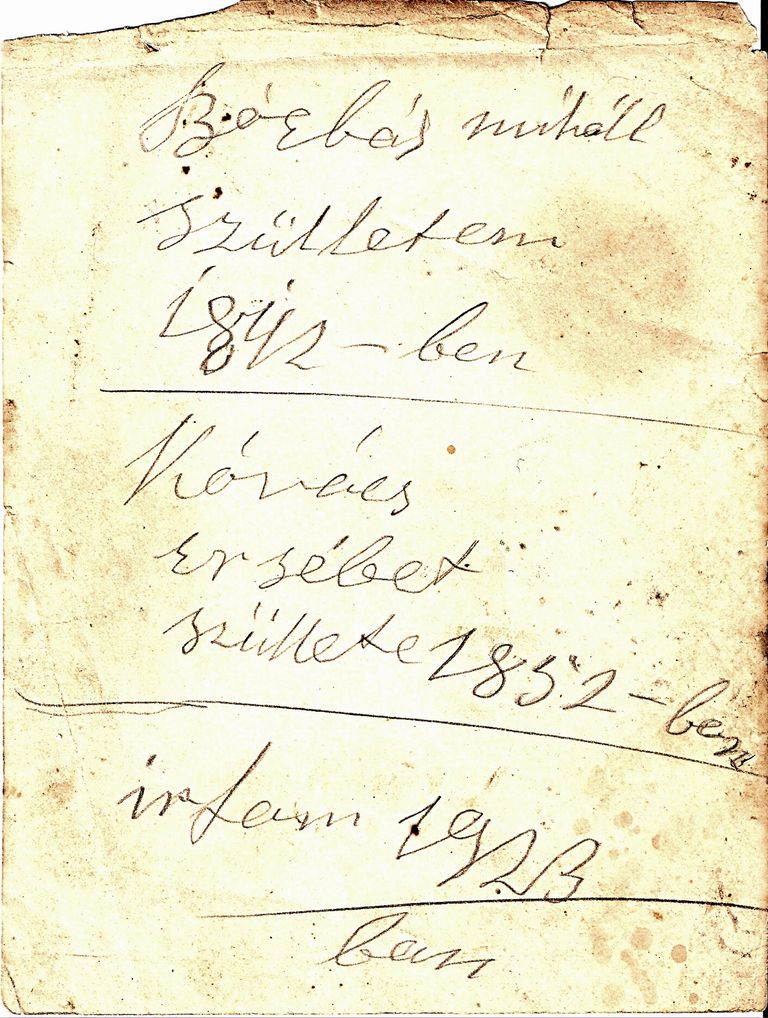 miháll
szülletem
1842-ben
Kóvács
Ersébet
szüllete 1852-ben
irtam 1923
ban